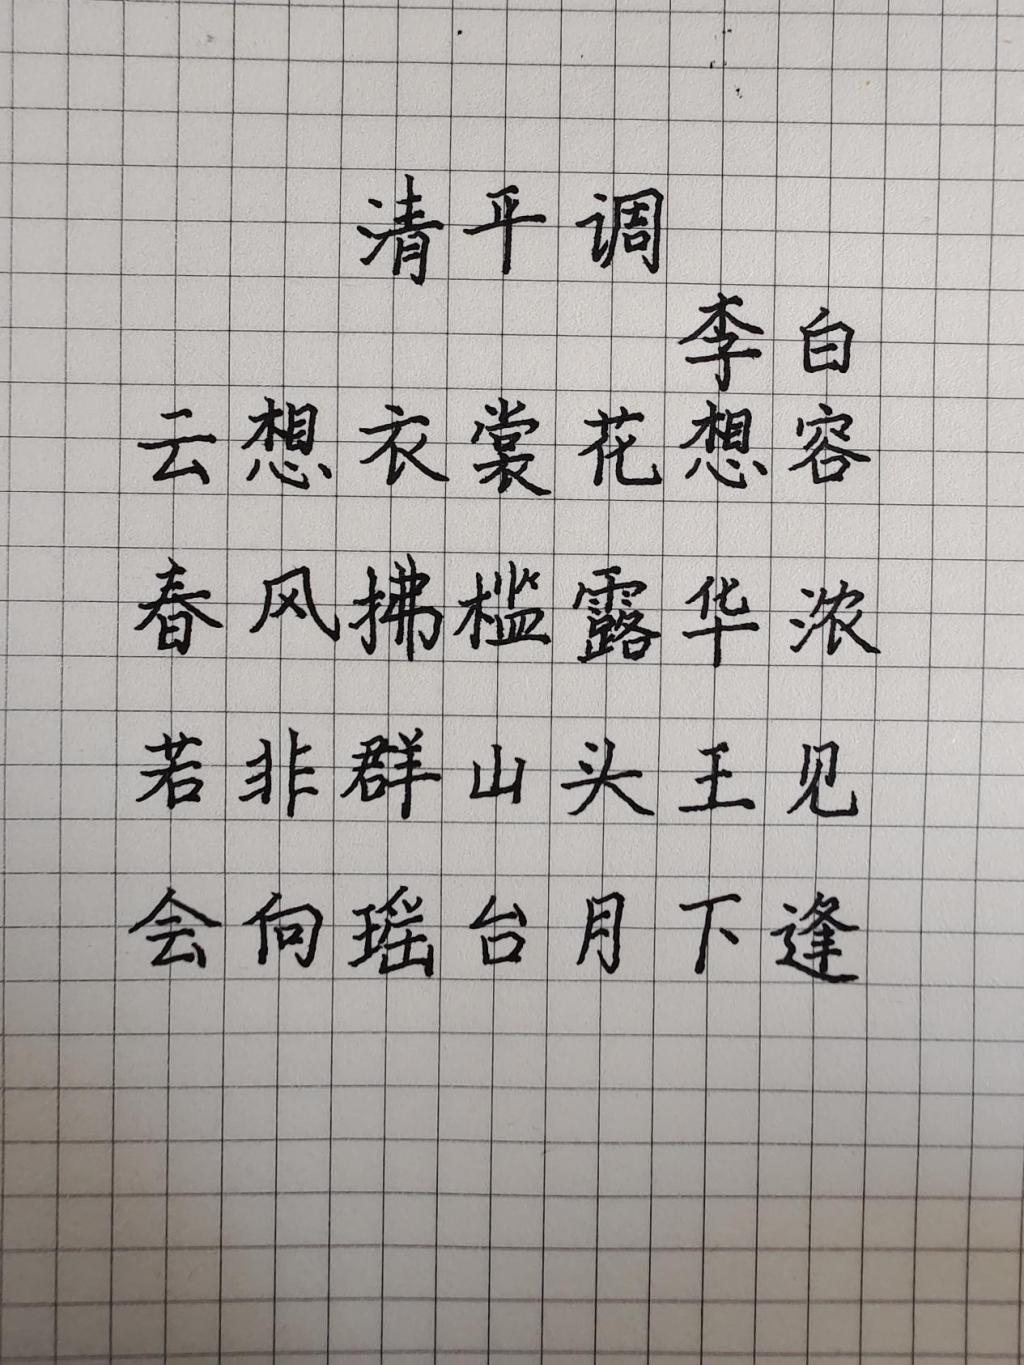 清平调
李白
云想衣裳花想容
春风拂槛露华浓
若非群山头王见
会向瑶台月下逢